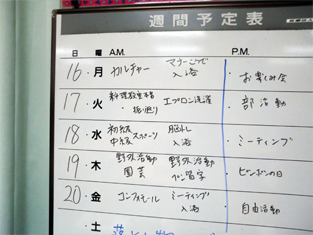 週間予定表
日 曜 A.M. P.M.
16 月 カルチャー 入浴 お楽しみ会
17 火 料理教室 エプロン洗濯 部活動
・振り返り
18 水 初級 スポーツ 脳トレ ミーティング
中級 入浴
19 木 野外活動 野外活動 ピンポンの日
園芸
20 金 ミーティング 自由活動
入浴
土